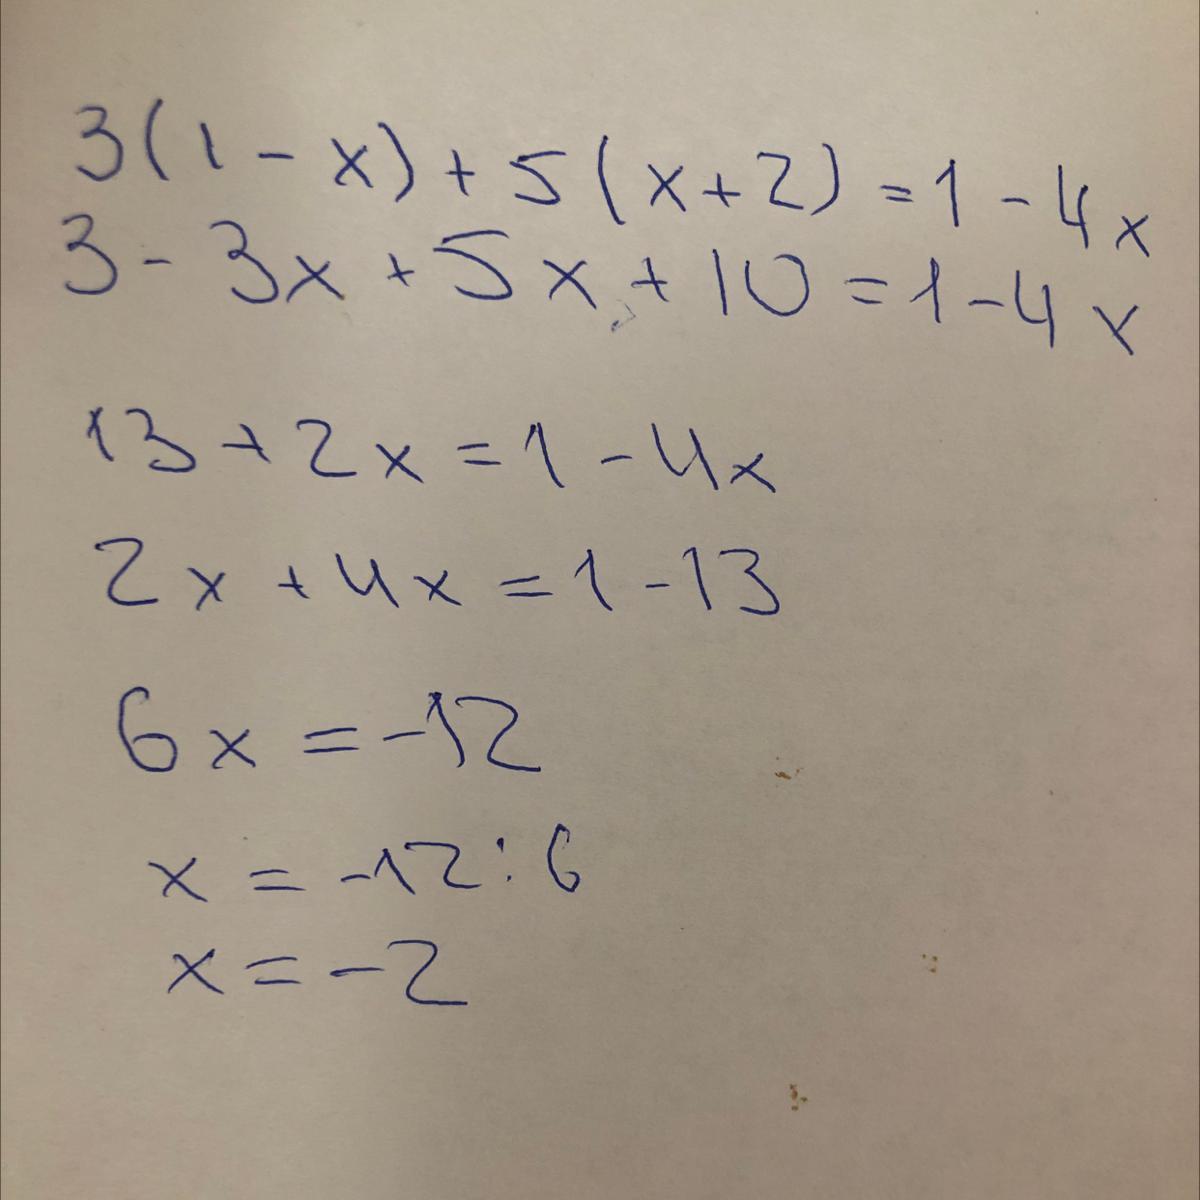 3(1-x)+5(x+2)=1-4x
3-3x+5x+10=1-4x
13+2x=1-4x
2x+4x=1-13
6x=-12
x=-12:6
x=-2